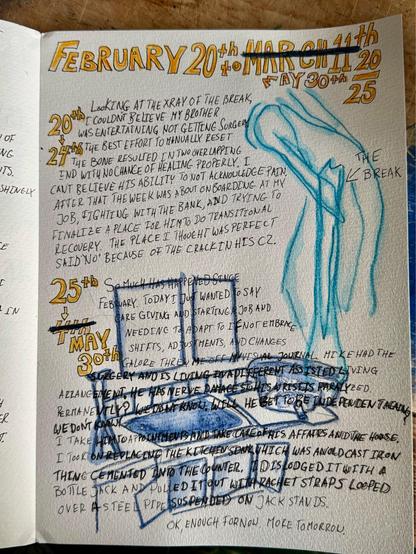 FEBRUARY 20th to MARCH 11th 20
MAY 30th 25
20th LOOKING AT THE XRAY OF THE BREAK,
I COULDN'T BELIEVE MY BROTHER
WAS ENTERTAINING NOT GETTING SURGERY
24th THE BEST EFFORT TO MANUALLY RESET
THE BONE RESULTED IN TWO OVERLAPPING
END WITH NO CHANCE OF HEALING PROPERLY. I
CAN'T BELIEVE HIS ABILITY TO NOT ACKNOWLEDGE PAIN.
AFTER THAT THE WEEK WAS ABOUT ONBOARDING AT MY
JOB, FIGHTING WITH THE BANK, AND TRYING TO
FINALIZE A PLACE FOR HIM TO DO TRANSITIONAL
RECOVERY. THE PLACE I THOUGHT WAS PERFECT
SAID 'NO' BECAUSE OF THE CRACK IN HIS C2.
THE
BREAK
25th
MAY
30th
SO MUCH HAS HAPPENED SINCE
FEBRUARY. TODAY I JUST WANTED TO SAY
CARE GIVING AND STARTING A JOB AND
NEEDING TO ADAPT TO IF NOT EMBRACE
SHIFTS, ADJUSTMENTS, AND CHANGES
GALORE THREW ME OFF MY USUAL JOURNAL. MIKE HAD THE
SURGERY AND IS LIVING IN A DIFFERENT ASSISTED LIVING
ARRANGEMENT. HE HAS NERVE DAMAGE SO HIS WRIST IS PARALYZED.
PERMANENTLY? WE DON'T KNOW. WILL HE GET TO BE INDEPENDENT AGAIN?
WE DON'T KNOW.
I TAKE HIM TO APPOINTMENTS AND TAKE CARE OF HIS AFFAIRS AND THE HOUSE.
I TOOK ON REPLACING THE KITCHEN SINK WHICH WAS AN OLD CAST IRON
THING CEMENTED INTO THE COUNTER. I DISLODGED IT WITH A
BOTTLE JACK AND PULLED IT OUT WITH RACHET STRAPS LOOPED
OVER A STEEL PIPE SUSPENDED ON JACK STANDS.
OK, ENOUGH FOR NOW. MORE TOMORROW.